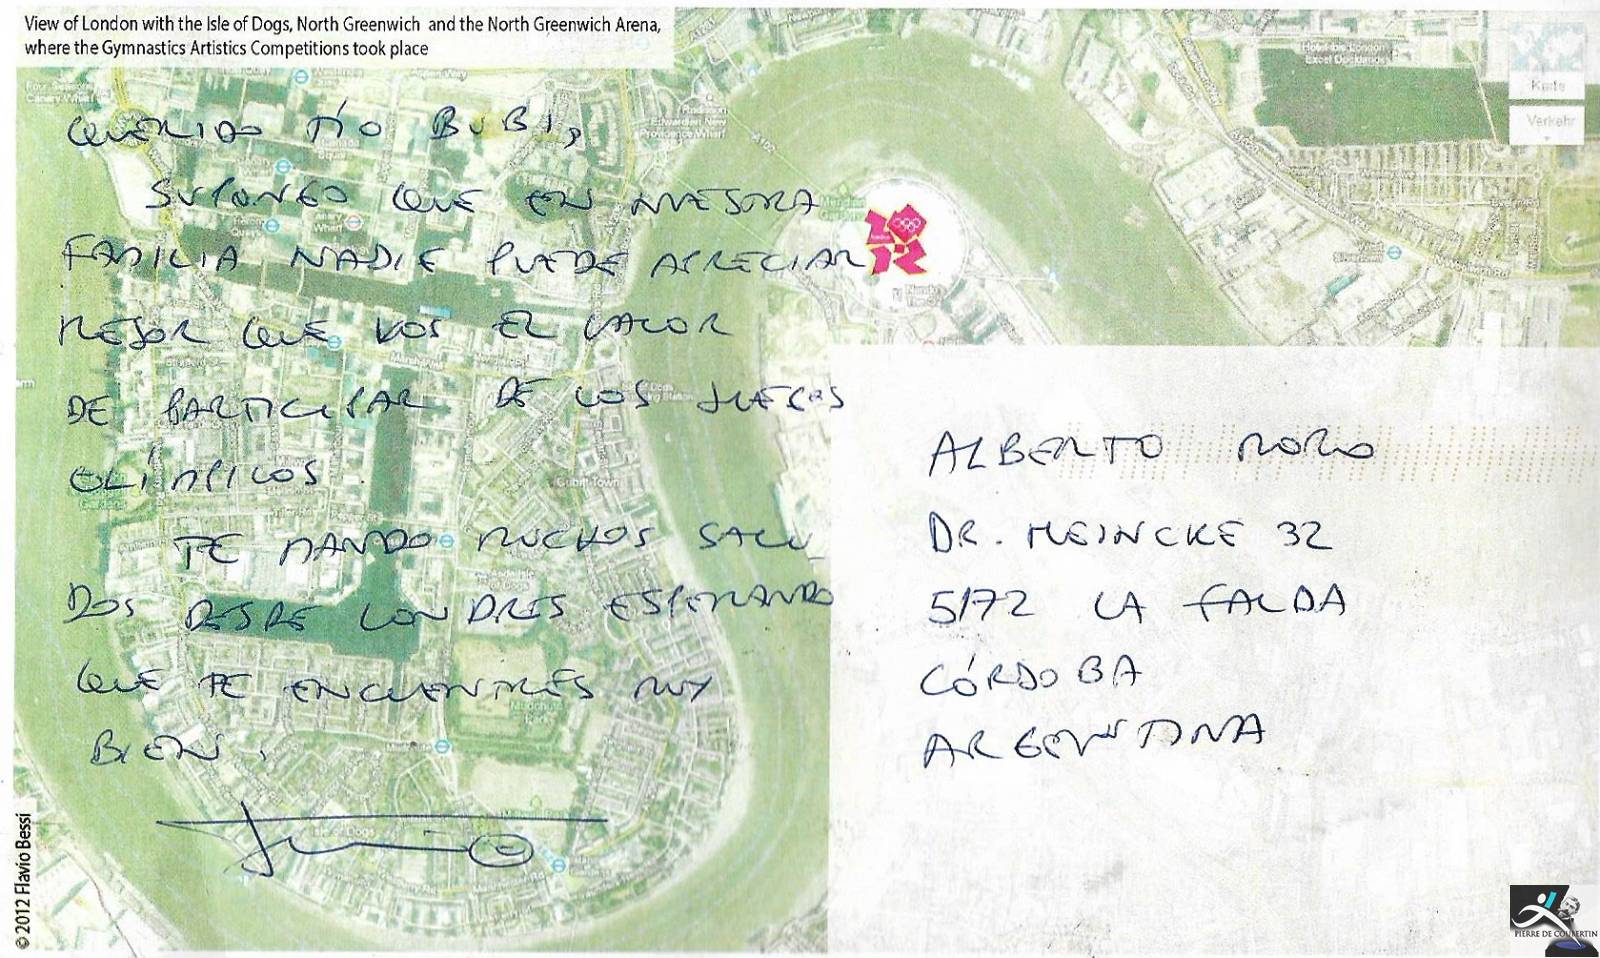 View of London with the Isle of Dogs, North Greenwich and the North Greenwich Arena,
where the Gymnastics Artistics Competitions took place
QUERIDO TÍO BUBI,
SUPONGO QUE EN NUESTRA
FAMILIA NADIE PUEDE APRECIAR
MEJOR QUE VOS EL VALOR
DE PARTICIPAR DE LOS JUEGOS
OLÍMPICOS
TE MANDO MUCHOS SALU
DOS DESDE LONDRES ESPERANDO
QUE TE ENCUENTRES MUY
BIEN.
ALBERTO MORO
DR. MEINCKE 32
5172 LA FALDA
CÓRDOBA
ARGENTINA
Hotel Ibis London
Excel Docklands
Karte
Verkehr
Radisson
Edwardian New
Providence Wharf
A102
Cubitt Town
Mudchute
Park
Isle of Dogs
© 2012 Flavio Bessi
PIERRE DE COUBERTIN